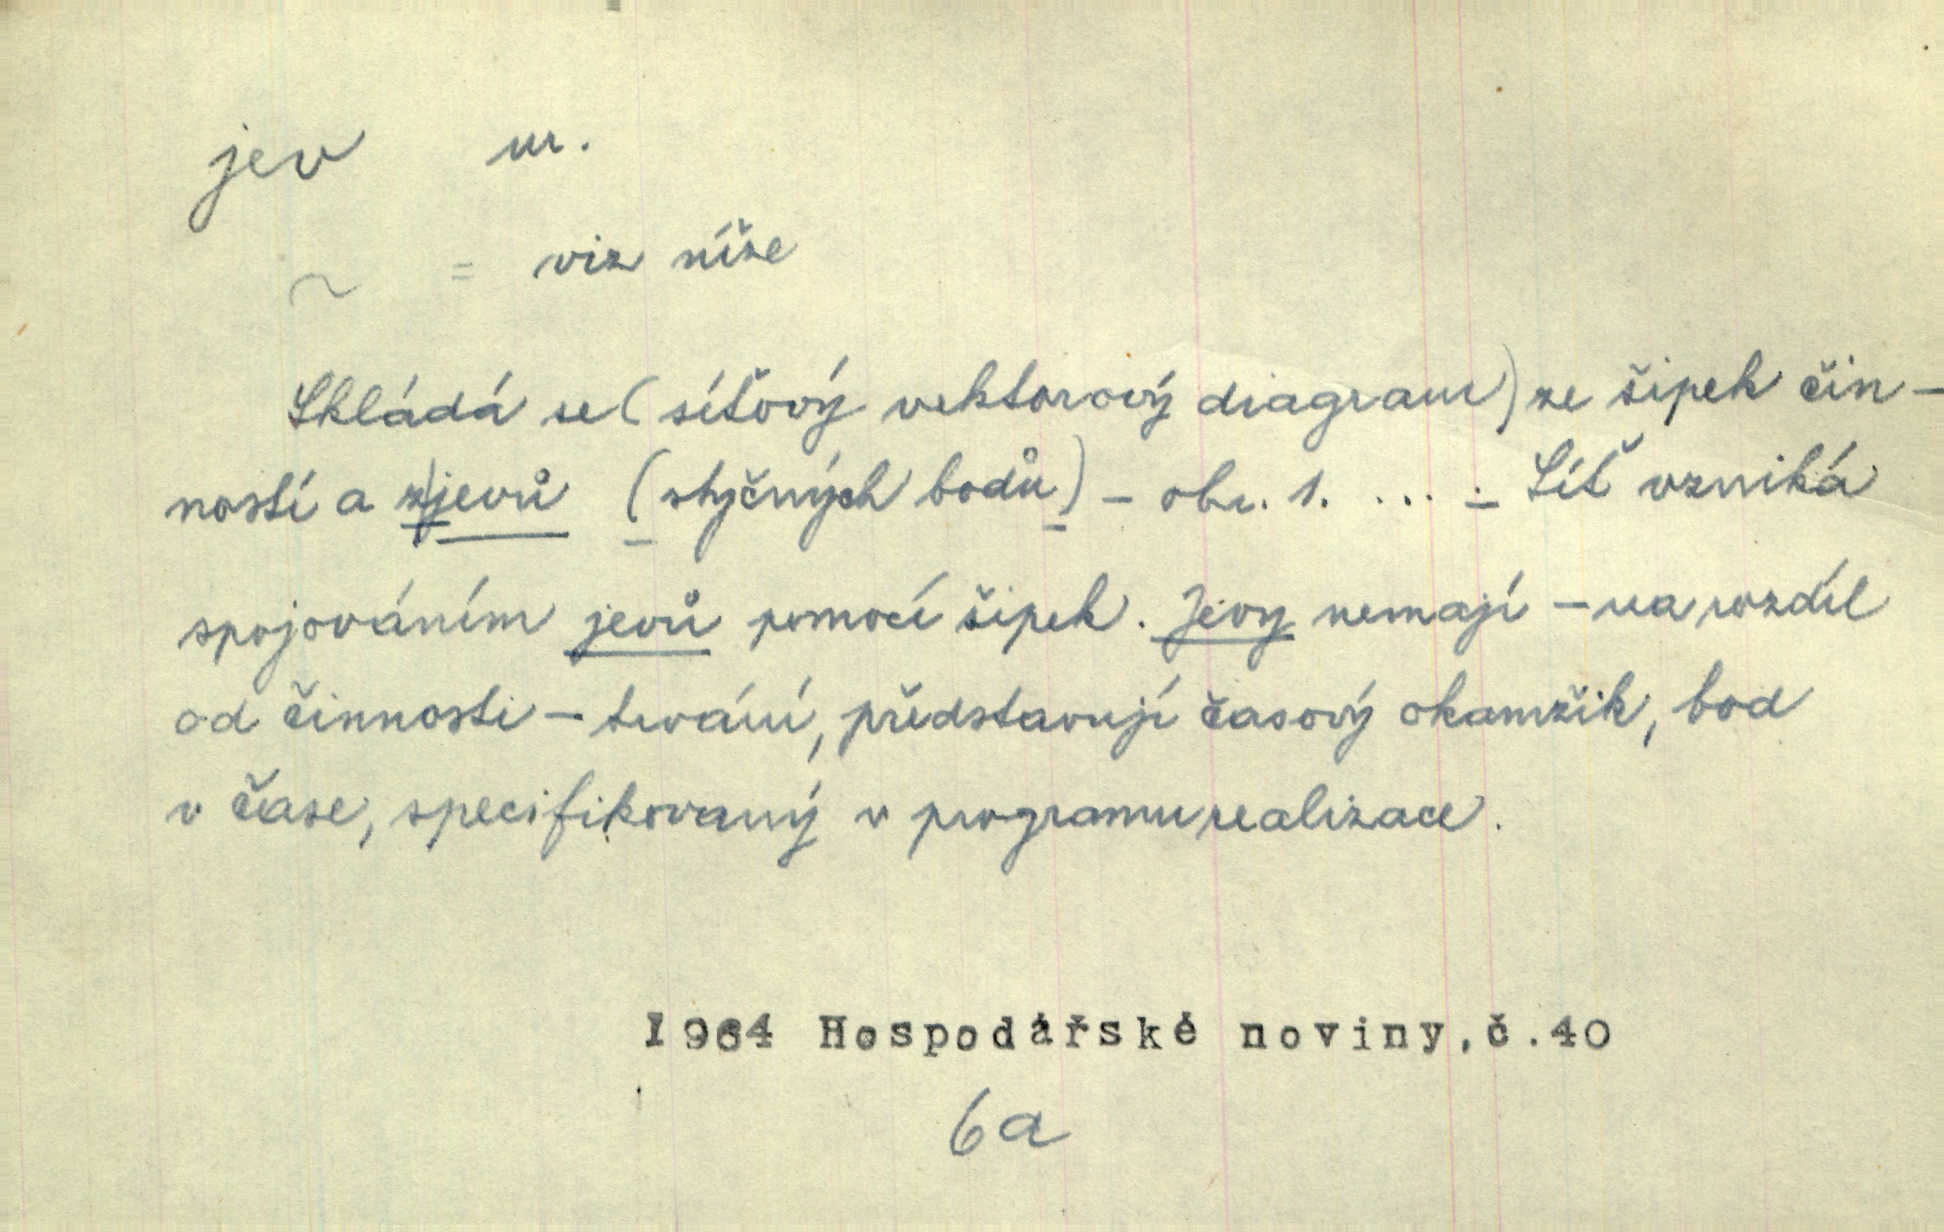 jev m.
~ = viz níže
Skládá se (síťový vektorový diagram) ze šipek čin-
ností a jevů (styčných bodů) - obr. 1. ... - Síť vzniká
spojováním jevů pomocí šipek. Jevy nemají - na rozdíl
od činnosti - trvání, představují časový okamžik, bod
v čase, specifikovaný v programu realizace.
1964 Hospodářské noviny, č. 40
6a